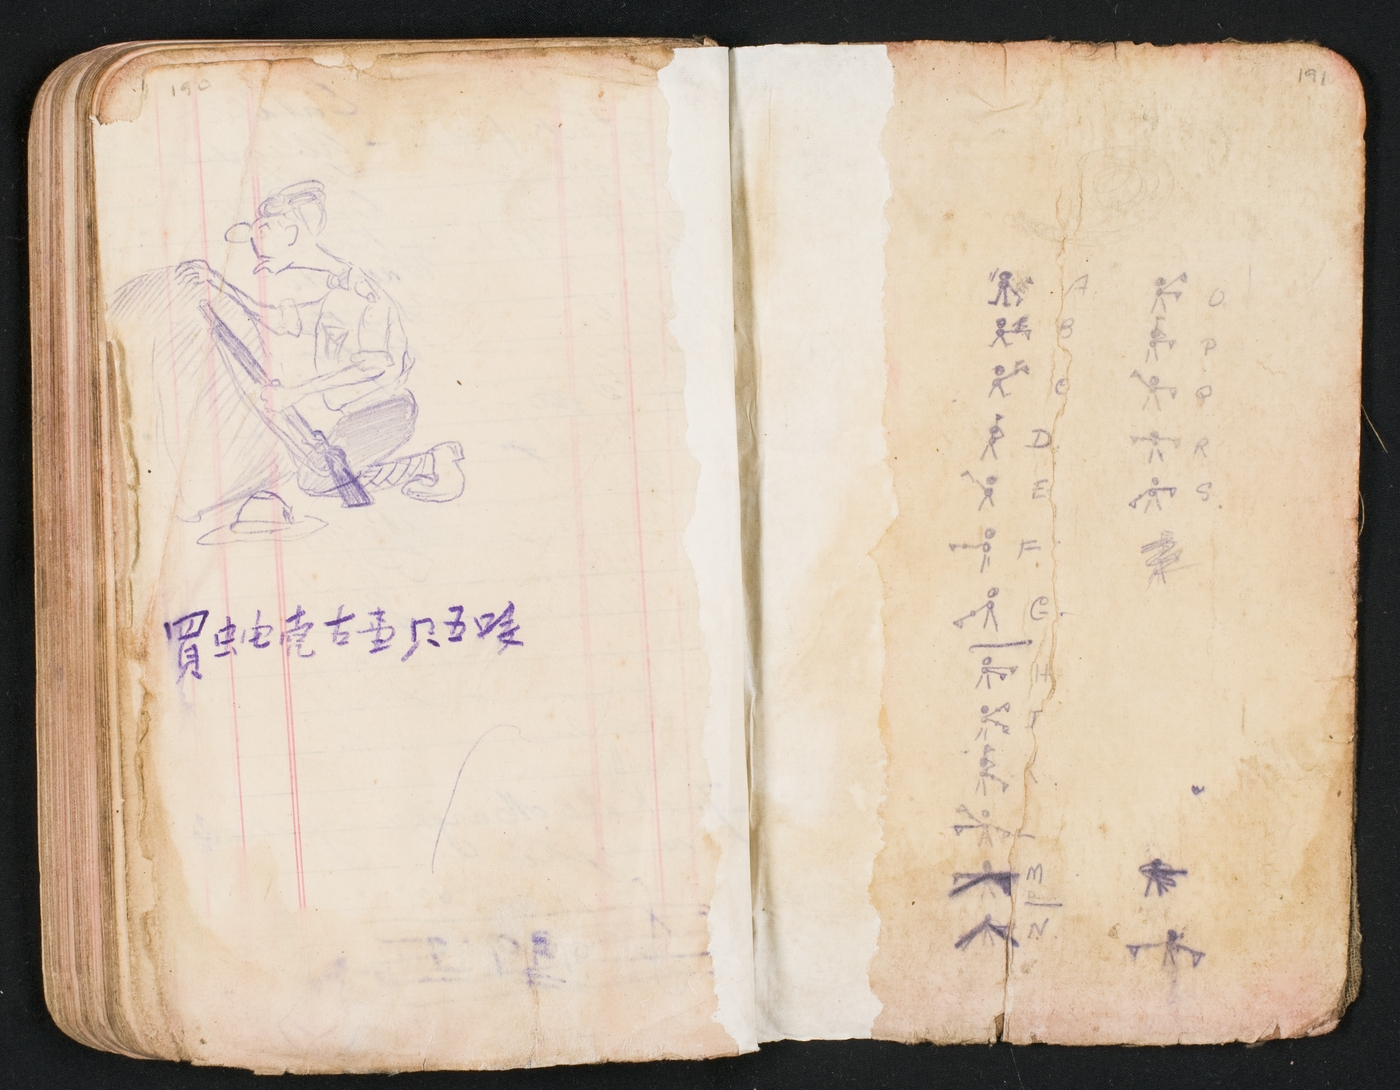 190
買虫电壳古壹只五吱
191
A
B
C
D
E
F.
G.
H
I
L
M
N.
O
P.
Q
R
S.